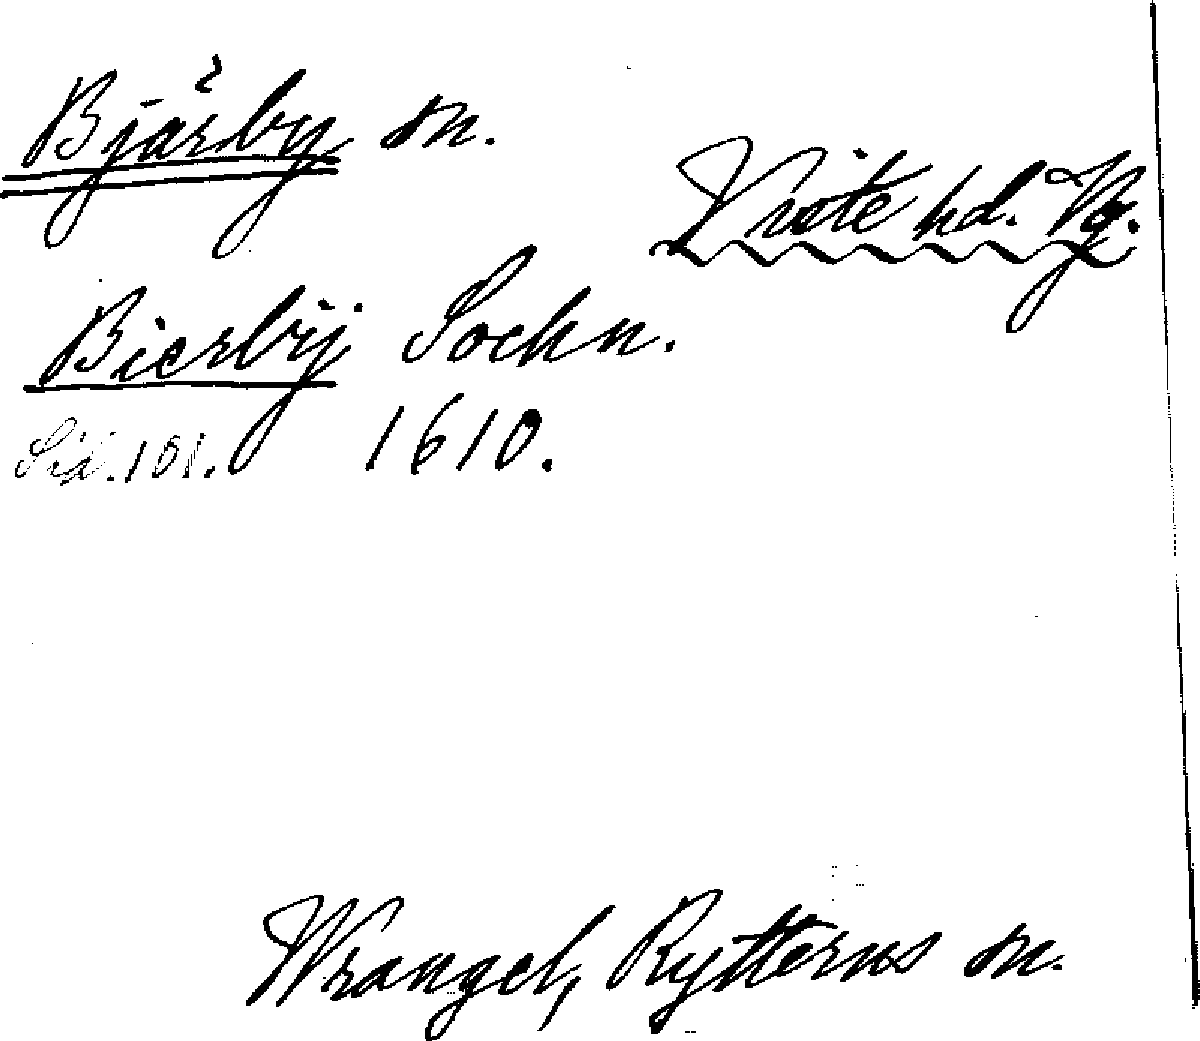 Bjärby sn.
Viste hd. Vg.
Bierbÿ Sochn.
Sid. 101. 1610.
Wrangel, Rytterns sn.